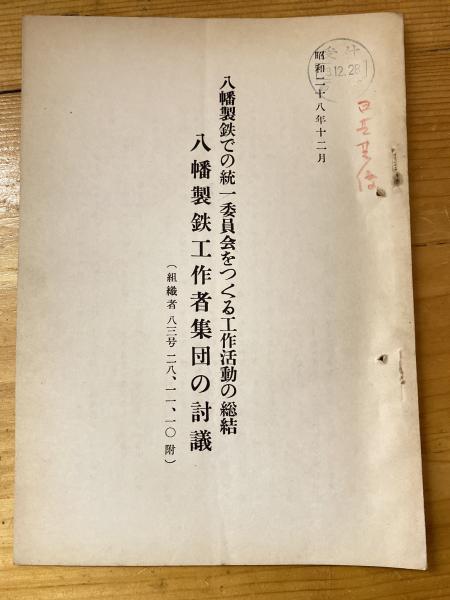 昭和二十八年十二月
八幡製鉄での統一委員会をつくる工作活動の総結
八幡製鉄工作者集団の討議
（組織者 八三号 二八、一一、一〇 附）
12.28